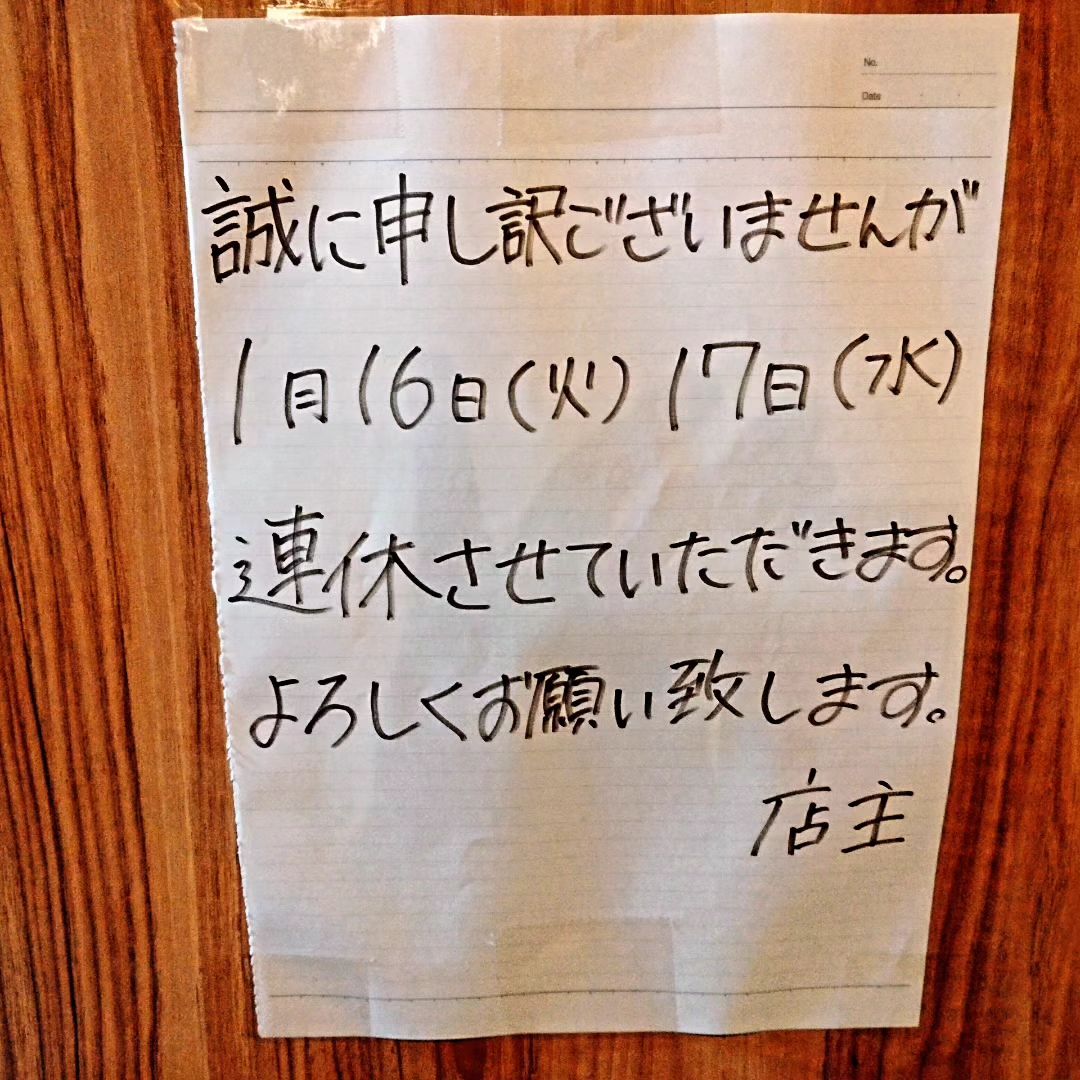 No.
Date
誠に申し訳ございませんが
1月16日(火) 17日(水)
連休させていただきます。
よろしくお願い致します。
店主